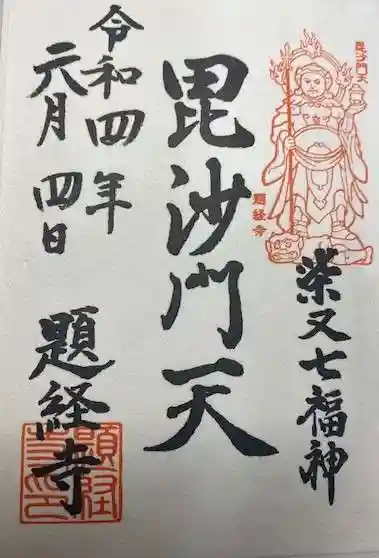 毘沙門天
題経寺
柴又七福神
毘沙門天
令和四年
元月四日
題経寺